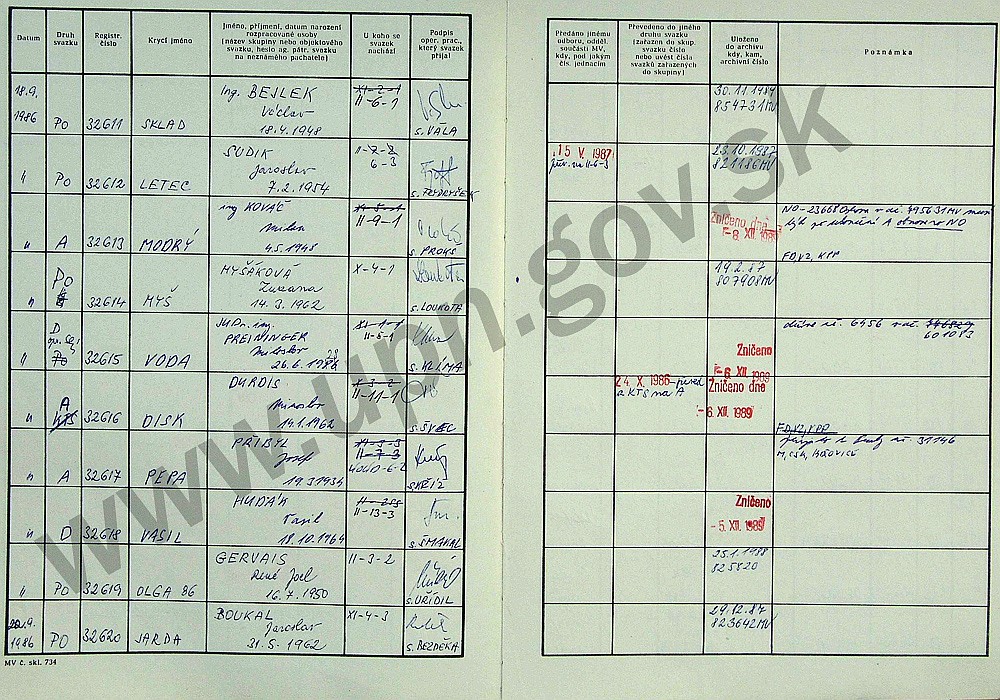 Datum
Druh svazku
Registr. číslo
Krycí jméno
Jméno, příjmení, datum narození
rozpracované osoby
(název skupiny nebo objektového
svazku, heslo ag. pátr. svazku
na neznámého pachatele)
U koho se
svazek
nachází
Podpis
oper. prac.,
který svazek
přijal
Předáno jinému
odboru, odděl.
součásti MV,
kdy, pod jakým
čís. jednacím
Převedeno do jiného
druhu svazku
(zařazen do skup.
svazku číslo
nebo uvést čísla
svazků zařazených
do skupiny)
Uloženo
do archivu
kdy, kam,
archivní číslo
Poznámka
18.9. 1986 PO 32611 SKLAD
Ing. BEJLEK
Václav
18.4.1948
XI-2-1
II-6-1
s. VALA
30.11.1989
854731 MV
" PO 32612 LETEC
SUDIK
Jaroslav
7.2.1954
II-7-2
6-3
15 V. 1987
23.10.1987
821186 MV
" A 32613 MODRY
ing KOVÁČ
Milan
4.5.1948
II-9-1
s. PROKS
Zničeno dne
-8. XII. 1989
FD, VZ, KPP
" PO 32614 MYŠ
MYŠÁKOVÁ
Zuzana
14.3.1962
X-4-1
s. LOUKOTA
19.2.87
807908 MV
" D PO 32615 VODA
JUDr. ing.
PREININGER
Miloslav
26.6.1928
XI-1-1
II-5-1
s. KLÍMA
Zničeno
-6. XII. 1989
601083
" A KTS 32616 DISK
DURDIS
Miroslav
14.1.1962
X-3-2
II-11-1
s. ŠVEC
24. X. 1986
a KTS na A
Zničeno dne
-6. XII. 1989
FD, VZ, KPP
" A 32617 PEPA
PŘIBYL
Josef
19.3.1934
XI-3-3
II-7-3
s. KŘÍŽ
" D 32618 VASIL
HUDÁK
Vasil
18.10.1964
II-13-3
s. ŠMAKAL
Zničeno
-5. XII. 1989
" PO 32619 OLGA 86
GERVAIS
René Joel
16.7.1950
II-3-2
s. UŘIDIL
25.1.1988
825820
1986 PO 32620 JARDA
BOUKAL
Jaroslav
31.5.1962
XI-4-3
s. BEZDĚKA
29.12.87
823642 MV
MV č. skl. 734
www.upn.gov.sk